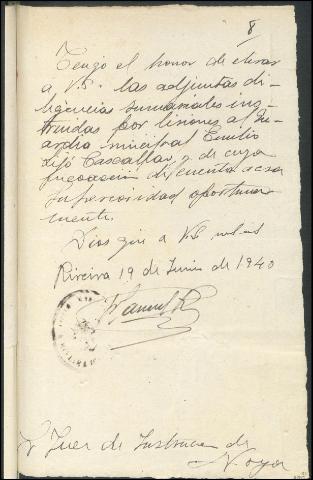 8
Tengo el honor de elevar
a V.S. las adjuntas di-
ligencias sumariales ins-
truidas por lesiones al Gu-
ardia municipal Emilio
Cascallar, y de cuya
incoación di cuenta a esa
Superioridad oportuna-
mente.
Dios gue a V.S. m. as
Riveira 19 de Junio de 1940
Manuel
Sr Juez de Instrucción de
Noya